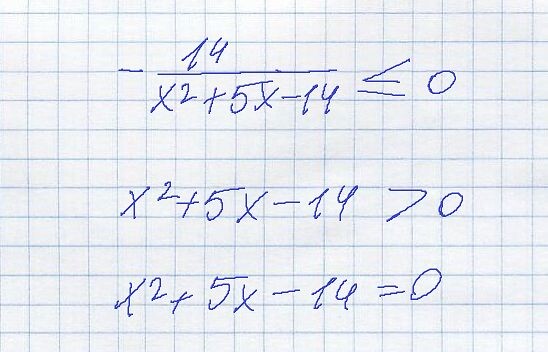 - 14/(x²+5x-14) ≤ 0
x²+5x-14 > 0
x²+5x-14=0